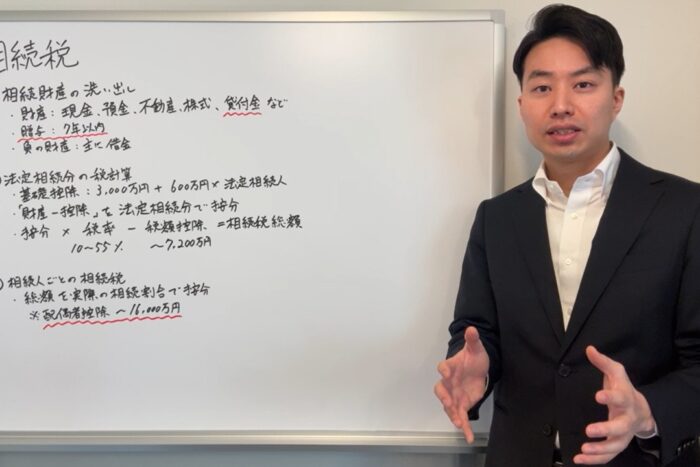 相続税
相続財産の洗い出し
・財産:現金、預金、不動産、株式、貸付金など
・贈与:7年以内
・負の財産:主に借金
)法定相続分の税計算
・基礎控除:3,000万円 + 600万円 × 法定相続人
・「財産-控除」を法定相続分で按分
・按分 × 税率 - 税額控除 = 相続税総額
10~55% ~7,200万円
)相続人ごとの相続税
・総額を実際の相続割合で按分
※配偶者控除 ~16,000万円